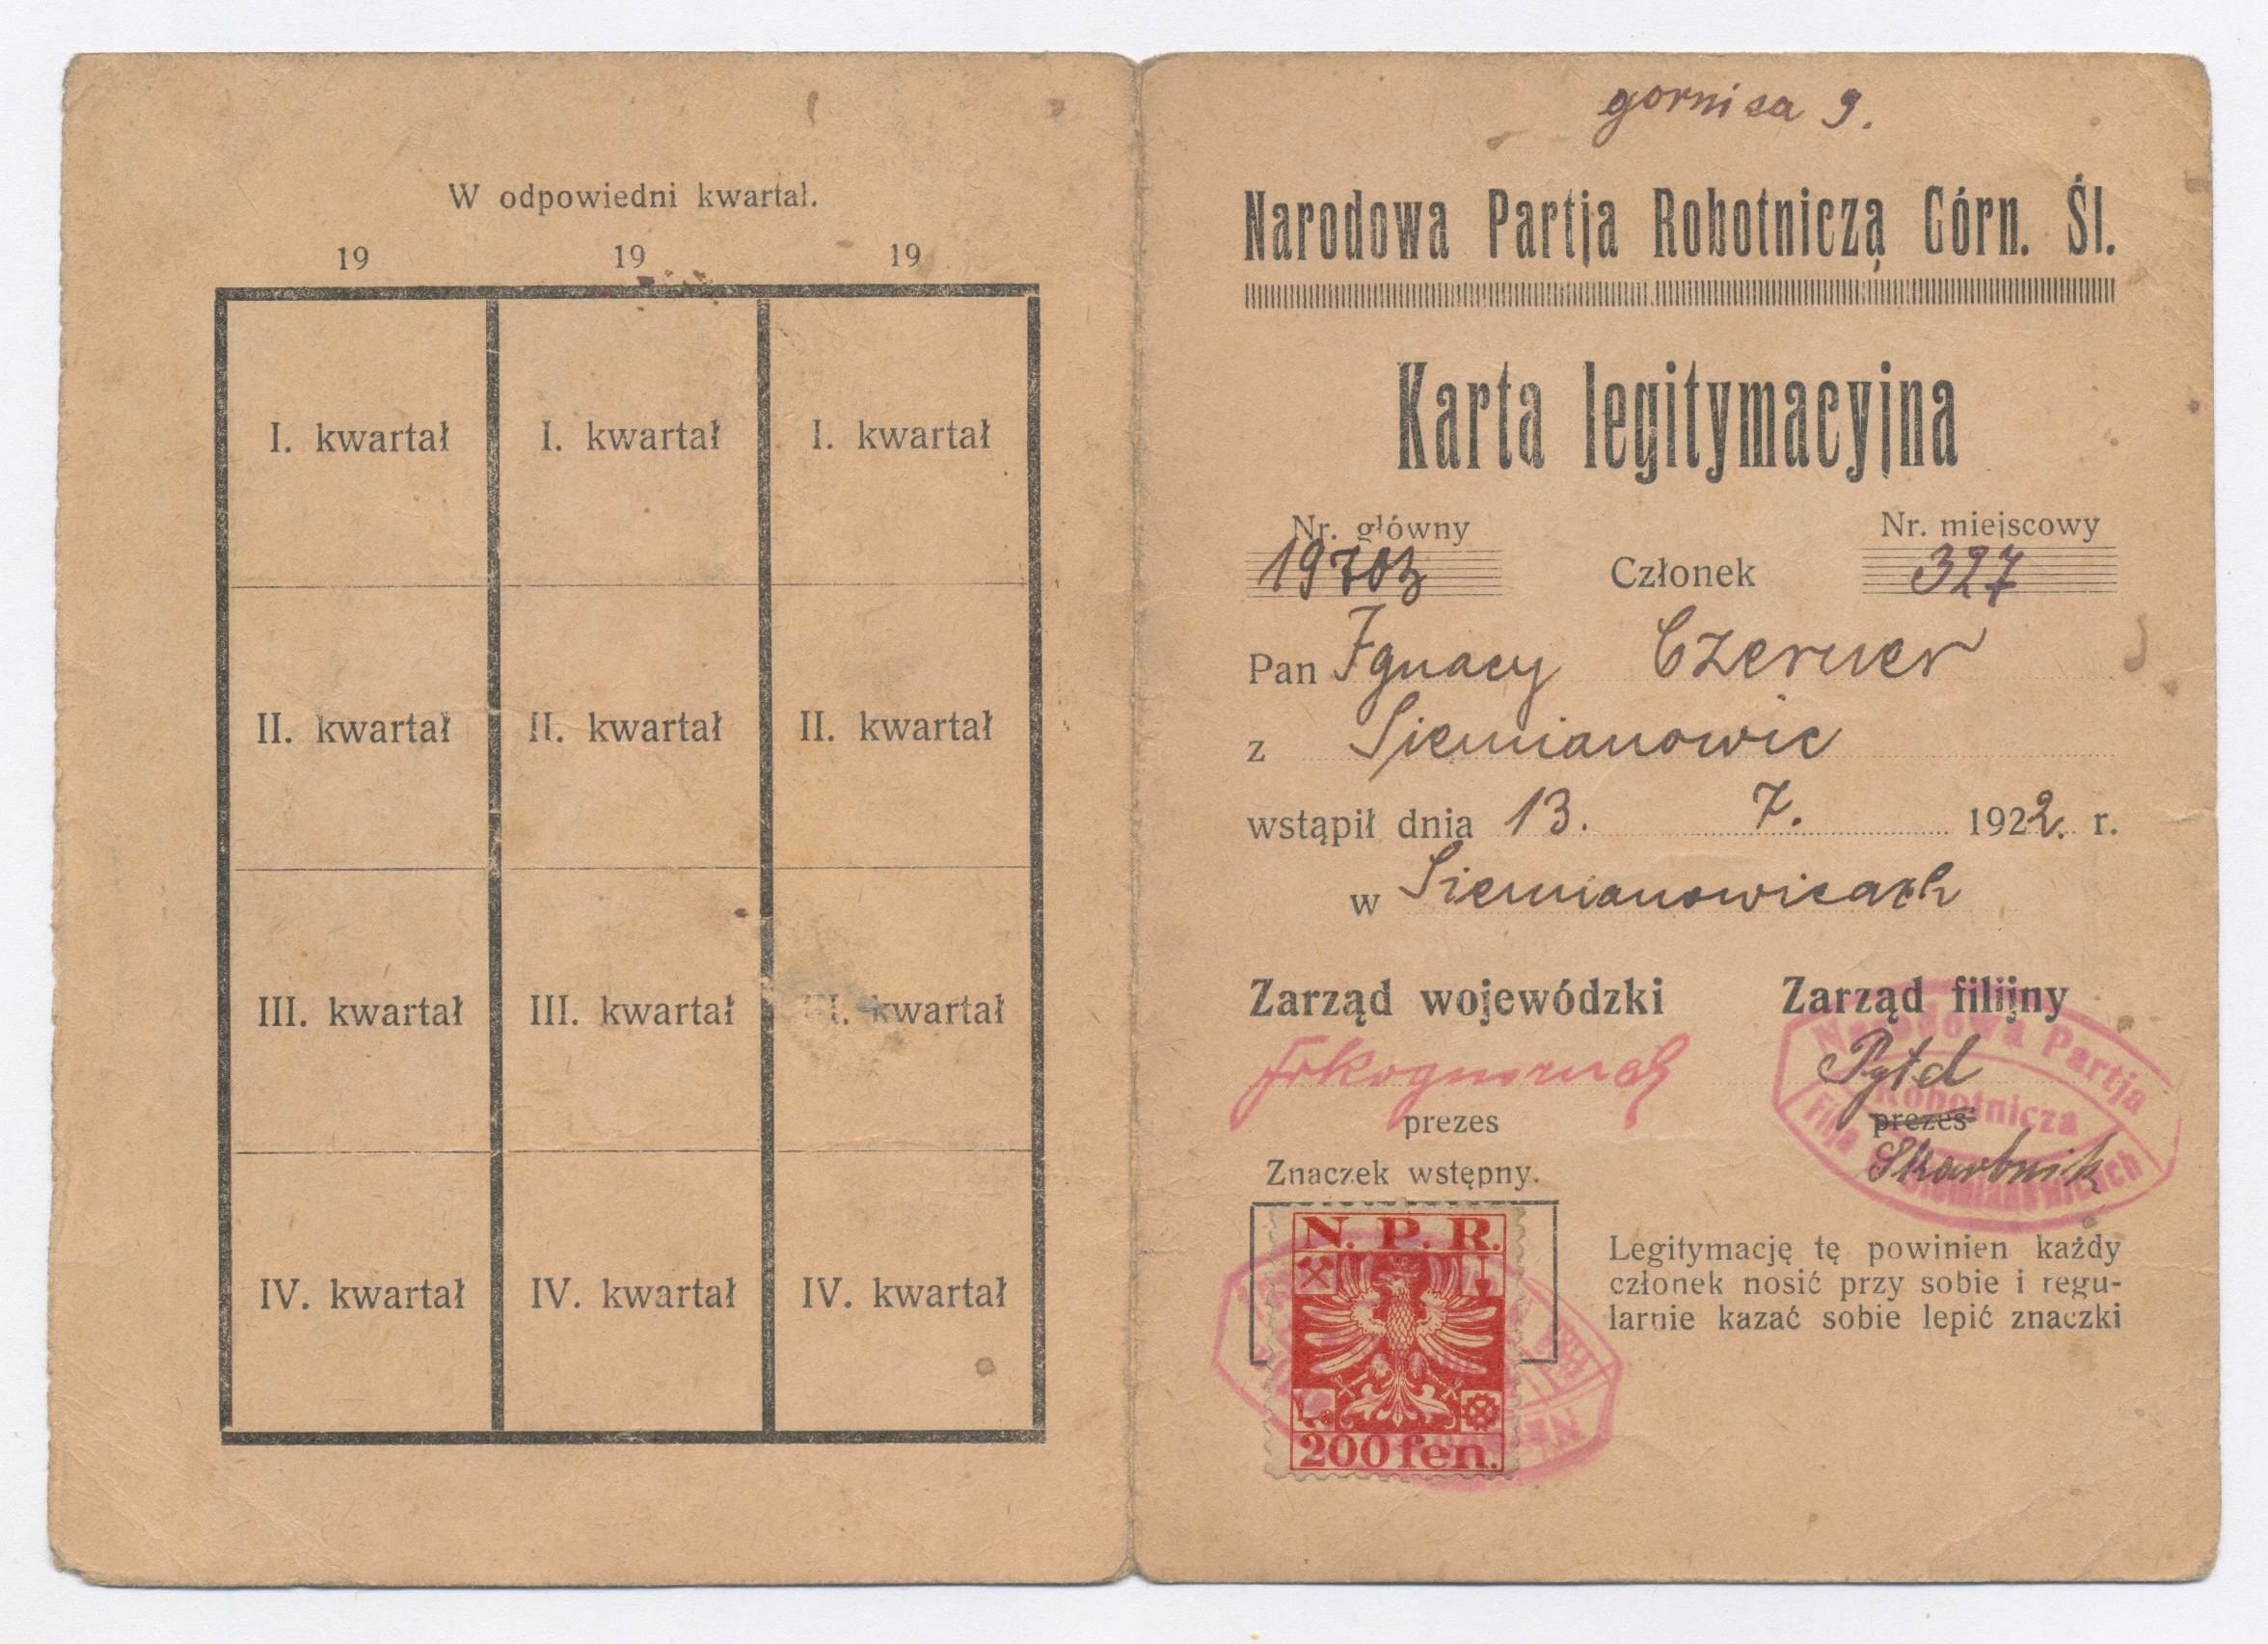 W odpowiedni kwartał.
19 19 19
I. kwartał I. kwartał I. kwartał
II. kwartał II. kwartał II. kwartał
III. kwartał III. kwartał III. kwartał
IV. kwartał IV. kwartał IV. kwartał
gornica 9.
Narodowa Partja Robotnicza Górn. Śl.
Karta legitymacyjna
Nr. główny Nr. miejscowy
19703 Członek 327
Pan Ignacy Czerner
z Siemianowic
wstąpił dnia 13. 7. 1922. r.
w Siemianowicach
Zarząd wojewódzki Zarząd filijny
Pytel
prezes prezes
Skarbnik
Narodowa Partja
Robotnicza
Filja Siemianowicach
Znaczek wstępny.
N. P. R.
200 fen.
Legitymację tę powinien każdy
członek nosić przy sobie i regu-
larnie kazać sobie lepić znaczki